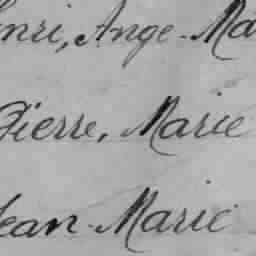 enri, Ange-Ma
Pierre, Marie
Jean-Marie